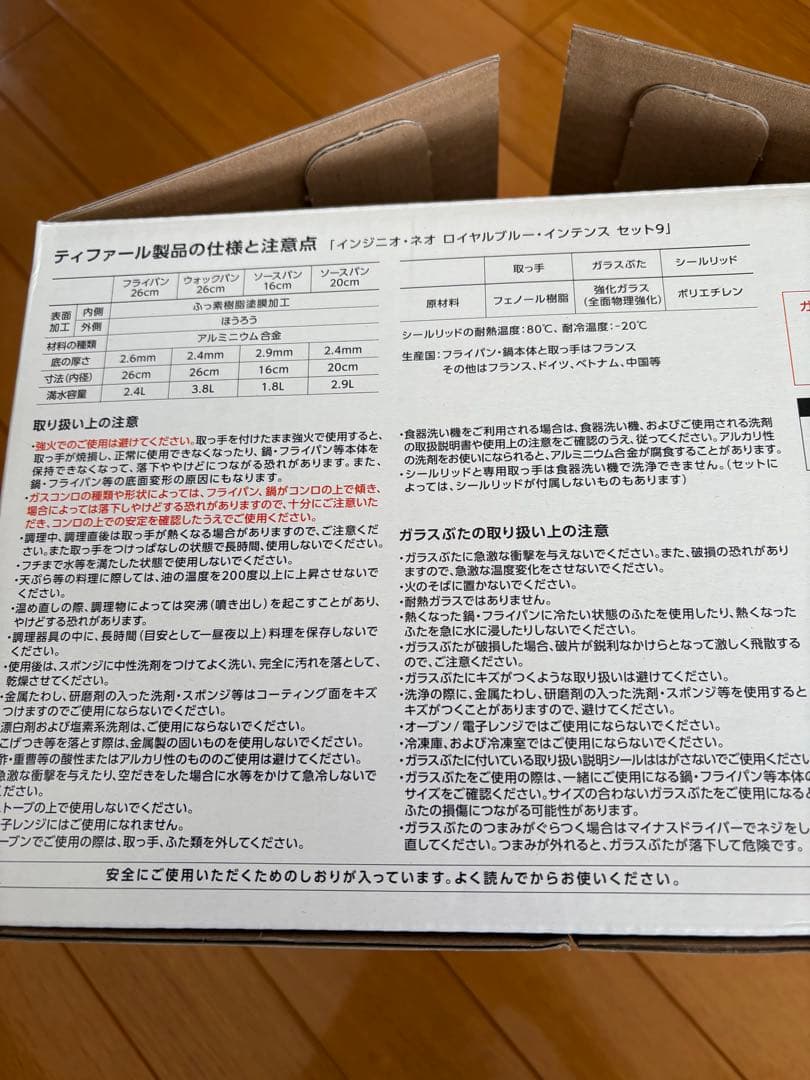 ティファール製品の仕様と注意点 「インジニオ・ネオ ロイヤルブルー・インテンス セット9」
フライパン 26cm ウォックパン 26cm ソースパン 16cm ソースパン 20cm
表面加工 内側 ふっ素樹脂塗膜加工
外側 ほうろう
材料の種類 アルミニウム合金
底の厚さ 2.6mm 2.4mm 2.9mm 2.4mm
寸法(内径) 26cm 26cm 16cm 20cm
満水容量 2.4L 3.8L 1.8L 2.9L
取っ手 ガラスぶた シールリッド
原材料 フェノール樹脂 強化ガラス(全面物理強化) ポリエチレン
シールリッドの耐熱温度:80℃、耐冷温度:-20℃
生産国:フライパン・鍋本体と取っ手はフランス
その他はフランス、ドイツ、ベトナム、中国等
取り扱い上の注意
・強火でのご使用は避けてください。取っ手を付けたまま強火で使用すると、
取っ手が焼損し、正常に使用できなくなったり、鍋・フライパン等本体を
保持できなくなって、落下ややけどにつながる恐れがあります。また、
鍋・フライパン等の底面変形の原因にもなります。
・ガスコンロの種類や形状によっては、フライパン、鍋がコンロの上で傾き、
場合によっては落下しやけどする恐れがありますので、十分にご注意いた
だき、コンロの上での安定を確認したうえでご使用ください。
・調理中、調理直後は取っ手が熱くなる場合がありますので、ご注意くだ
さい。また取っ手をつけっぱなしの状態で長時間、使用しないでください。
・フチまで水等を満たした状態で使用しないでください。
・天ぷら等の料理に際しては、油の温度を200度以上に上昇させないで
ください。
・温め直しの際、調理物によっては突沸(噴き出し)を起こすことがあり、
やけどする恐れがあります。
・調理器具の中に、長時間(目安として一昼夜以上)料理を保存しないで
ください。
・使用後は、スポンジに中性洗剤をつけてよく洗い、完全に汚れを落として、
乾燥させてください。
・金属たわし、研磨剤の入った洗剤・スポンジ等はコーティング面をキズ
つけますのでご使用にならないでください。
漂白剤および塩素系洗剤は、ご使用にならないでください。
こげつき等を落とす際は、金属製の固いものを使用しないでください。
酢・重曹等の酸性またはアルカリ性のもののご使用は避けてください。
急激な衝撃を与えたり、空だきをした場合に水等をかけて急冷しないで
ください。
トーブの上で使用しないでください。
子レンジにはご使用になれません。
ーブンでご使用の際は、取っ手、ふた類を外してください。
・食器洗い機をご利用される場合は、食器洗い機、およびご使用される洗剤
の取扱説明書や使用上の注意をご確認のうえ、従ってください。アルカリ性
の洗剤をお使いになられると、アルミニウム合金が腐食することがあります。
・シールリッドと専用取っ手は食器洗い機で洗浄できません。(セットに
よっては、シールリッドが付属しないものもあります)
ガラスぶたの取り扱い上の注意
・ガラスぶたに急激な衝撃を与えないでください。また、破損の恐れがあり
ますので、急激な温度変化をさせないでください。
・火のそばに置かないでください。
・耐熱ガラスではありません。
・熱くなった鍋・フライパンに冷たい状態のふたを使用したり、熱くなった
ふたを急に水に浸したりしないでください。
・ガラスぶたが破損した場合、破片が鋭利なかけらとなって激しく飛散する
ので、ご注意ください。
・ガラスぶたにキズがつくような取り扱いは避けてください。
・洗浄の際に、金属たわし、研磨剤の入った洗剤・スポンジ等を使用すると
キズがつくことがありますので、避けてください。
・オーブン/電子レンジではご使用にならないでください。
・冷凍庫、および冷凍室ではご使用にならないでください。
・ガラスぶたに付いている取り扱い説明シールははがさないでご使用くださ
・ガラスぶたをご使用の際は、一緒にご使用になる鍋・フライパン等本体の
サイズをご確認ください。サイズの合わないガラスぶたをご使用になると
ふたの損傷につながる可能性があります。
・ガラスぶたのつまみがぐらつく場合はマイナスドライバーでネジをし
直してください。つまみが外れると、ガラスぶたが落下して危険です。
安全にご使用いただくためのしおりが入っています。よく読んでからお使いください。